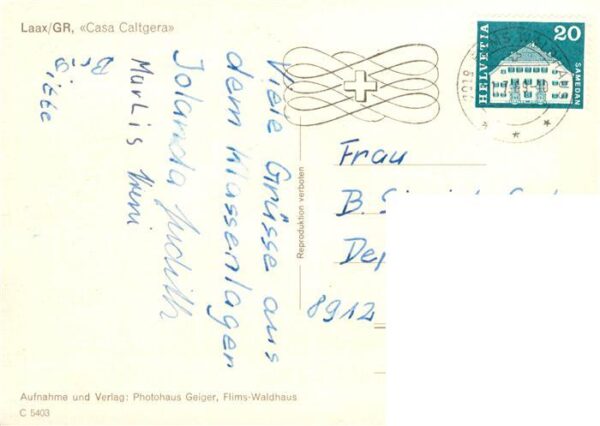 Laax/GR, «Casa Caltgera»
Viele Grüsse aus
dem Klassenlager
Jolanda Judith
Marlis Vreni
HELVETIA
20
SAMEDAN
Reproduktion verboten
Frau
B.
8912
Aufnahme und Verlag: Photohaus Geiger, Flims-Waldhaus
C 5403